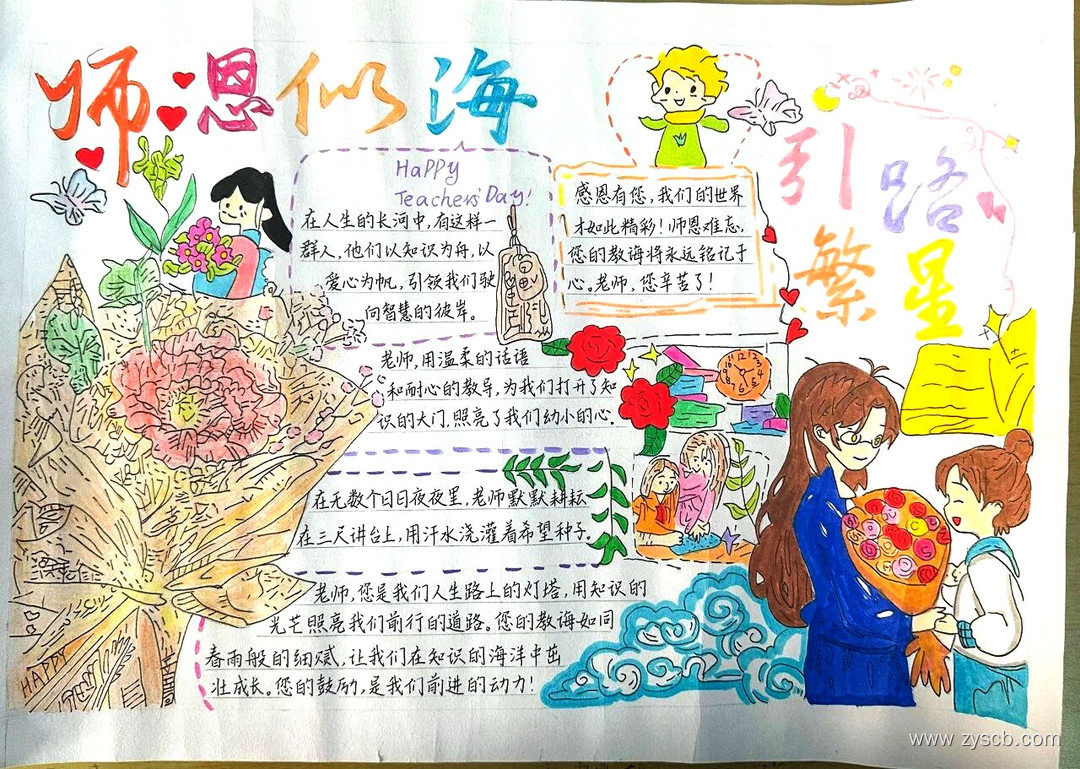 师恩似海
引路
繁星
HaPPY
Teachers' Day!
在人生的长河中,有这样一
群人,他们以知识为舟,以
爱心为帆,引领我们驶
向智慧的彼岸。
感恩有您,我们的世界
才如此精彩!师恩难忘,
您的教诲将永远铭记于
心。老师,您辛苦了!
老师,用温柔的话语
和耐心的教导,为我们打开了知
识的大门,照亮了我们幼小的心。
在无数个日日夜夜里,老师默默耕耘
在三尺讲台上,用汗水浇灌着希望种子。
老师,您是我们人生路上的灯塔,用知识的
光芒照亮我们前行的道路。您的教诲如同
春雨般的细腻,让我们在知识的海洋中茁
壮成长。您的鼓励,是我们前进的动力!
HAPPY
www.zyscb.com